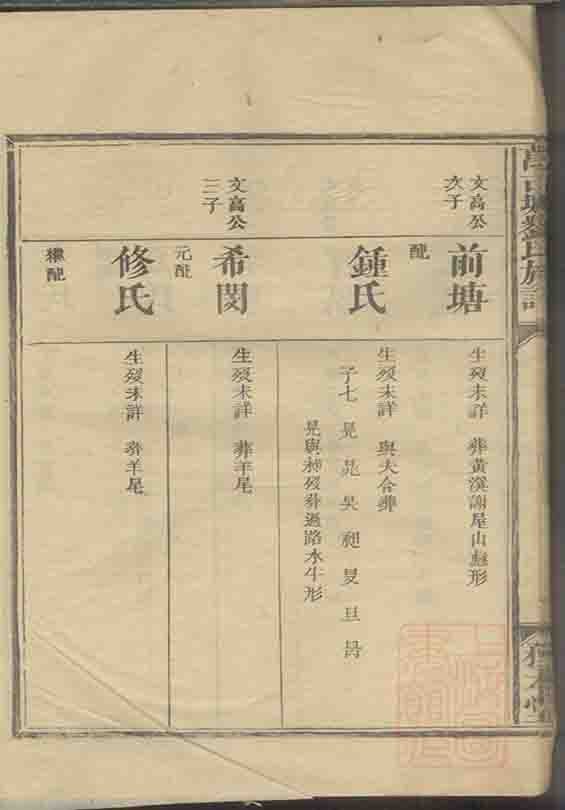 文高公
次子
前塘
生歿未詳 葬黃漠謝屋山形
配
鍾氏
生歿未詳 與夫合葬
子七 晃 晁 昊 昶 旻 旦 昺
晃與昶歿葬過路水牛形
文高公
三子
希閔
生歿未詳 葬羊尾
元配
修氏
生歿未詳 葬羊尾
繼配
氏族譜